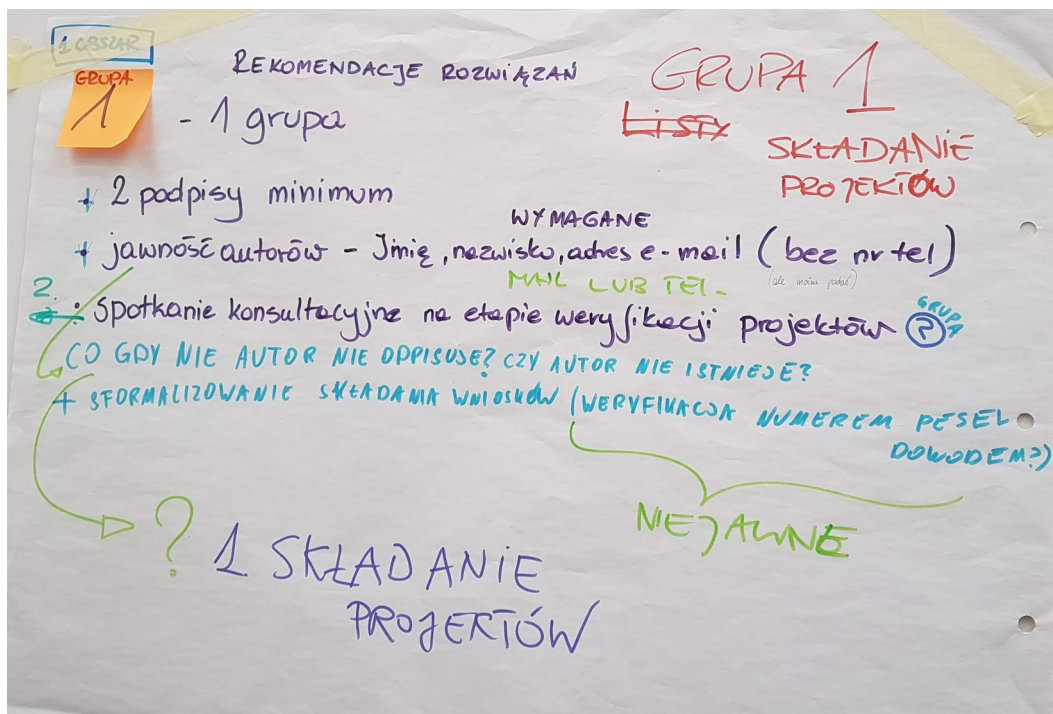 1 OBSZAR
GRUPA
1
REKOMENDACJE ROZWIĄZAŃ
- 1 grupa
GRUPA 1
LISTY
SKŁADANIE
PROJEKTÓW
+ 2 podpisy minimum
WYMAGANE
+ jawność autorów - Imię, nazwisko, adres e-mail (bez nr tel)
(ale można podać)
MAIL LUB TEL.
2.
: Spotkanie konsultacyjne na etapie weryfikacji projektów ?
GRUPA
CO GDY NIE AUTOR NIE ODPISUJE? CZY AUTOR NIE ISTNIEJE?
+ SFORMALIZOWANIE SKŁADANIA WNIOSKÓW (WERYFIKACJA NUMEREM PESEL
DOWODEM?)
NIEJAWNE
? 1 SKŁADANIE
PROJEKTÓW